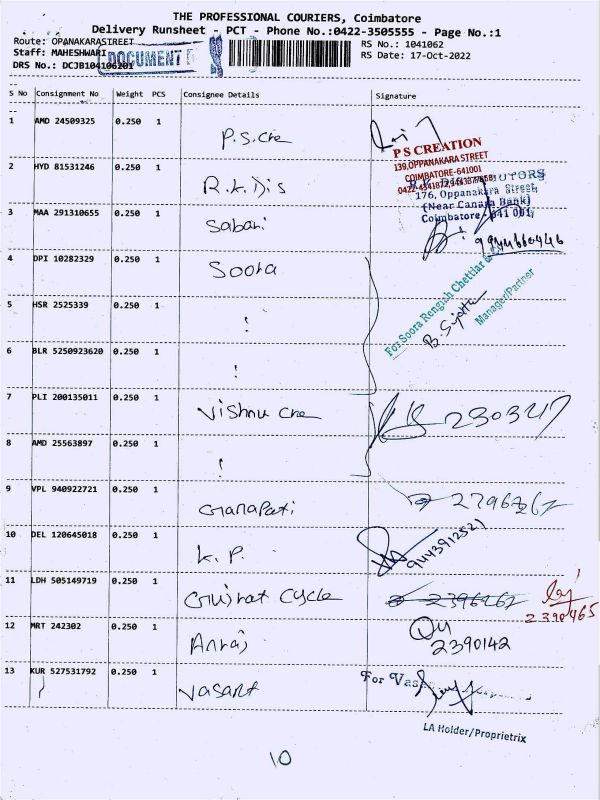 THE PROFESSIONAL COURIERS, Coimbatore
Delivery Runsheet - PCT - Phone No.:0422-3505555 - Page No.:1
Route: OPANAKARASTREET
Staff: MAHESHWARI
DRS No.: DCJB104106201
DOCUMENT
RS No.: 1041062
RS Date: 17-Oct-2022
S No Consignment No Weight PCS Consignee Details Signature
1 AMD 24509325 0.250 1 P.S.Cre
P S CREATION
139, OPPANAKARA STREET
COIMBATORE-641001
2 HYD 81531246 0.250 1 R.K.Dis
176, Oppanakara Street,
(Near Canara Bank)
Coimbatore - 641 001
3 MAA 291310655 0.250 1 Sabari
9944660446
4 DPI 10282329 0.250 1 Soora
For Soora Rengiah Chettiar &
B. Sujatha
Manager/Partner
5 HSR 2525339 0.250 1 !
6 BLR 5250923620 0.250 1 !
7 PLI 200135011 0.250 1 Vishnu Cre 2303217
8 AMD 25563897 0.250 1 !
9 VPL 940922721 0.250 1 Ganapati
10 DEL 120645018 0.250 1 K.P. 9443912521
11 LDH 505149719 0.250 1 Gujrat Cycle 2396262
2390465
12 MRT 242302 0.250 1 Anraj
2390142
13 KUR 527531792 0.250 1 Vasant
For Vasa
LA Holder/Proprietrix
10